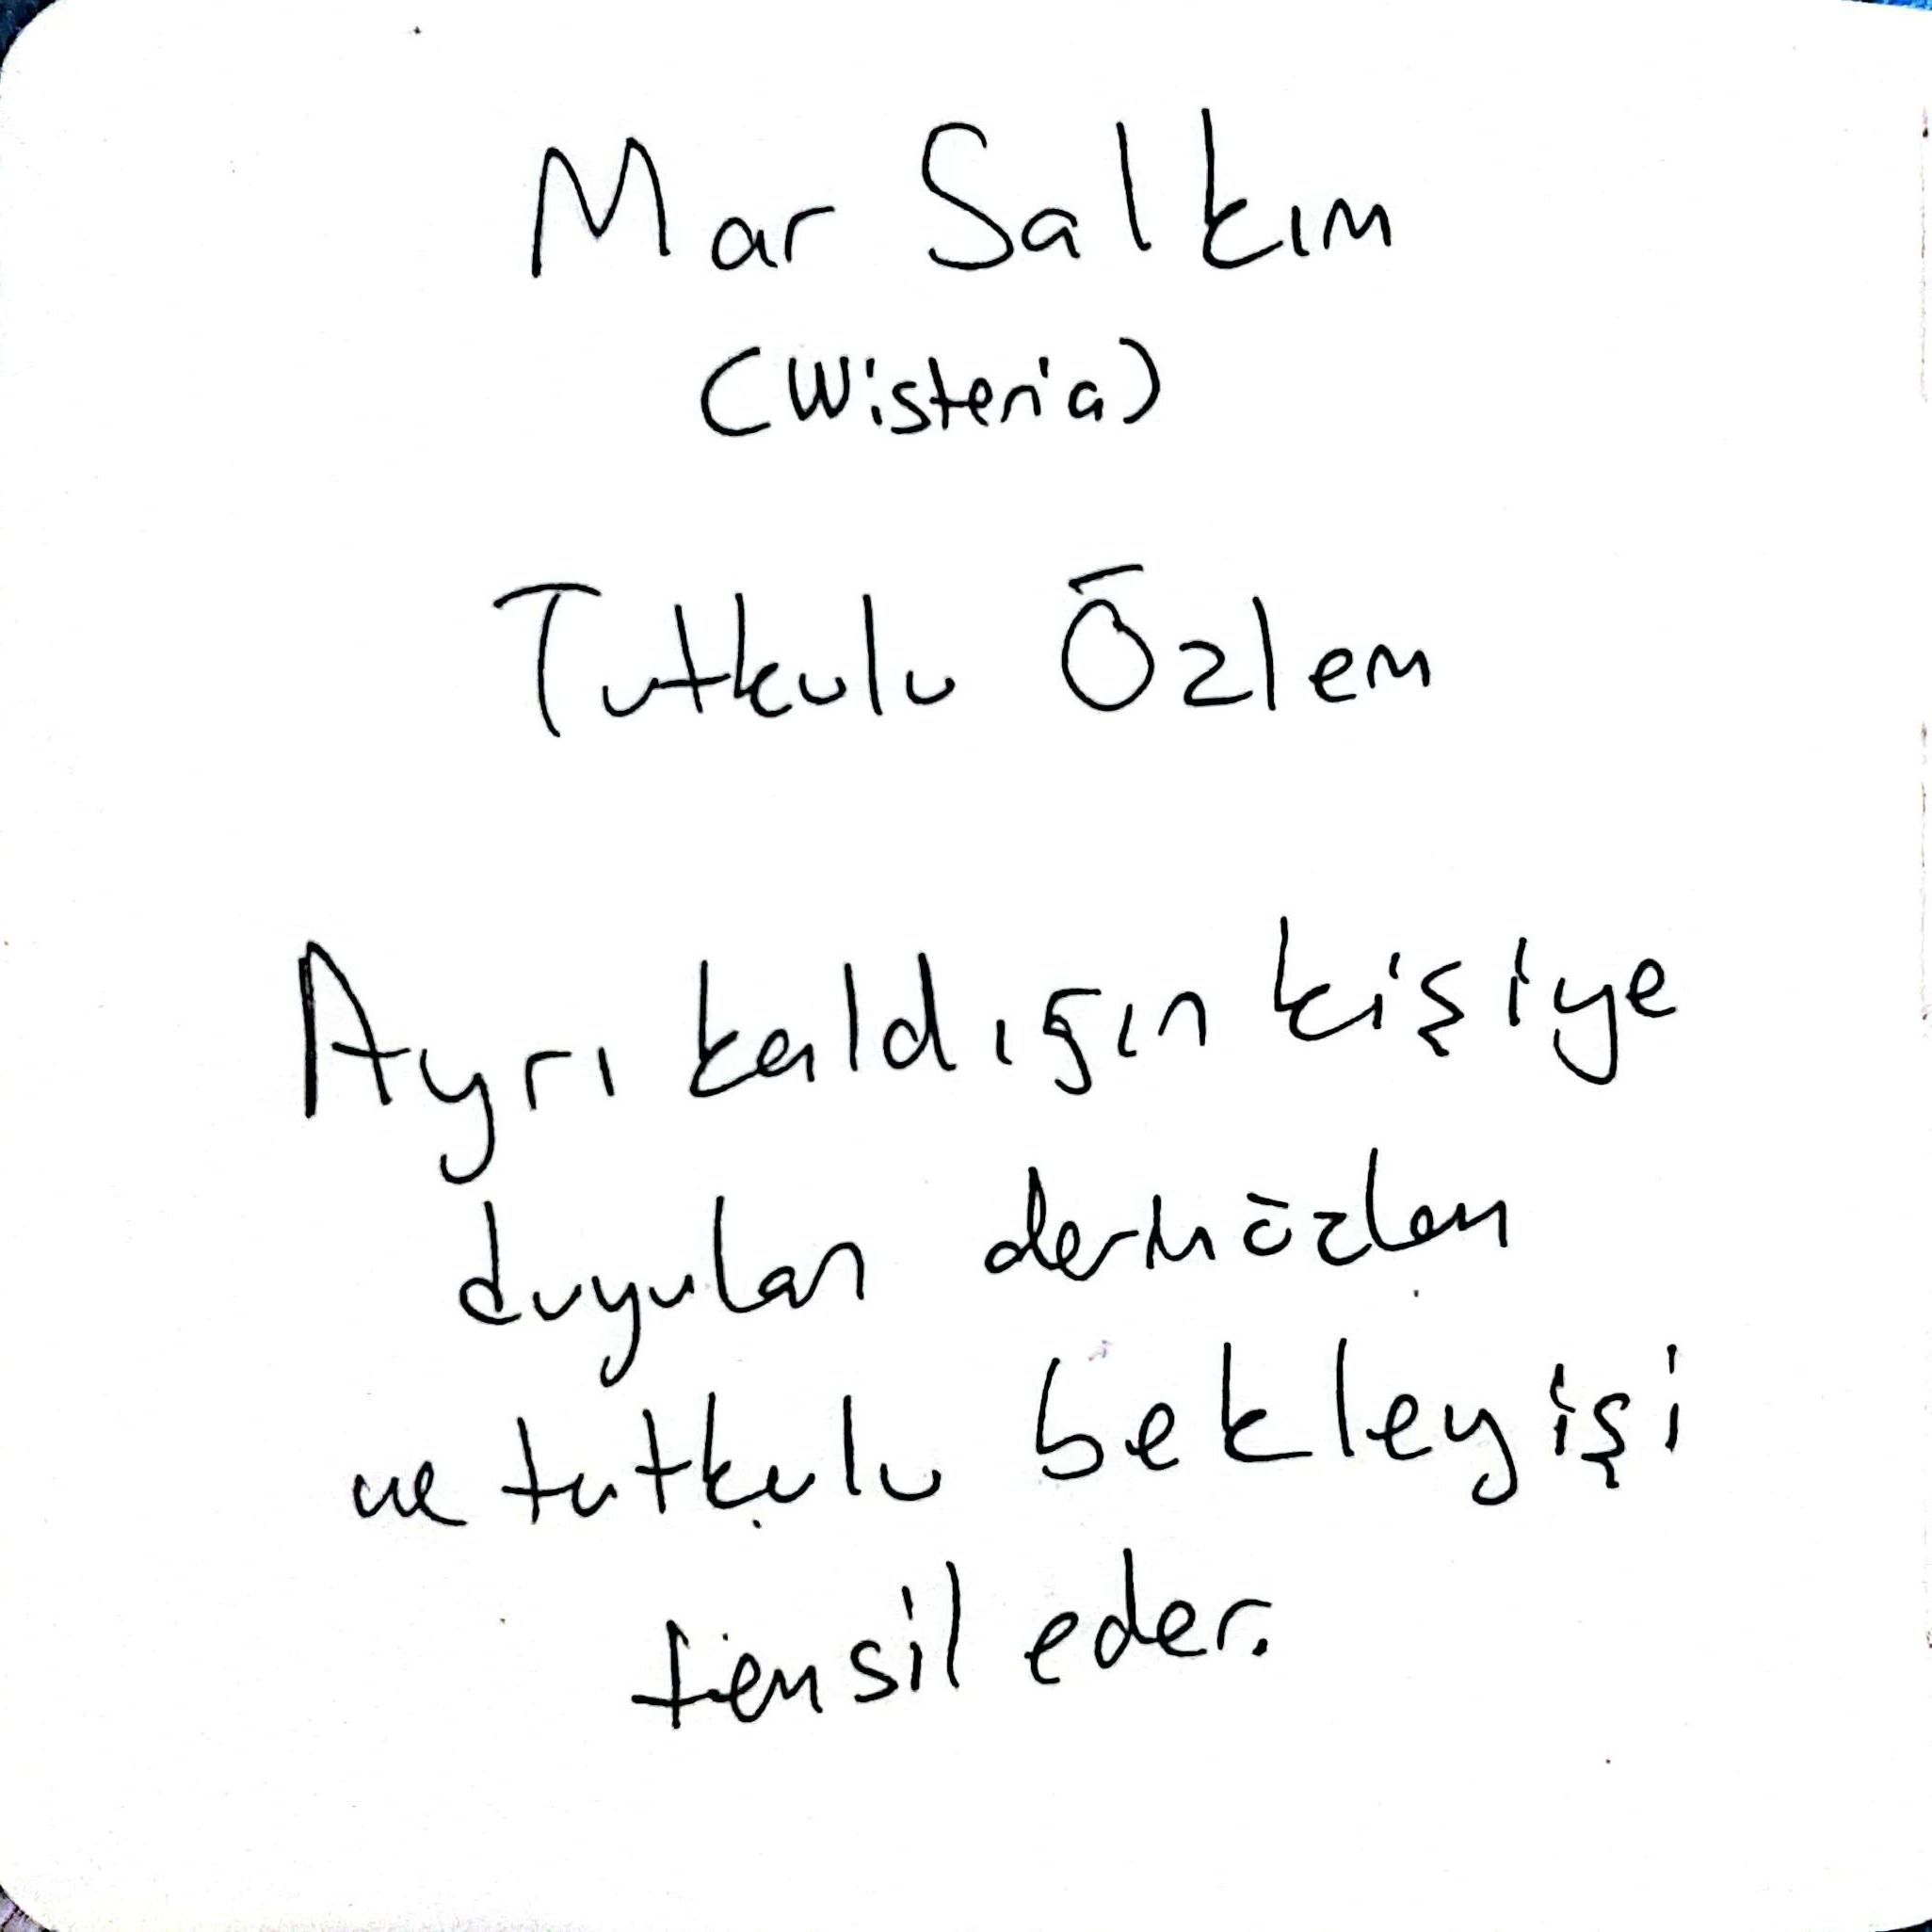 Mor Salkım
(Wisteria)
Tutkulu Özlem
Ayrı kaldığın kişiye
duyulan derin özlem
ve tutkulu bekleyişi
temsil eder.